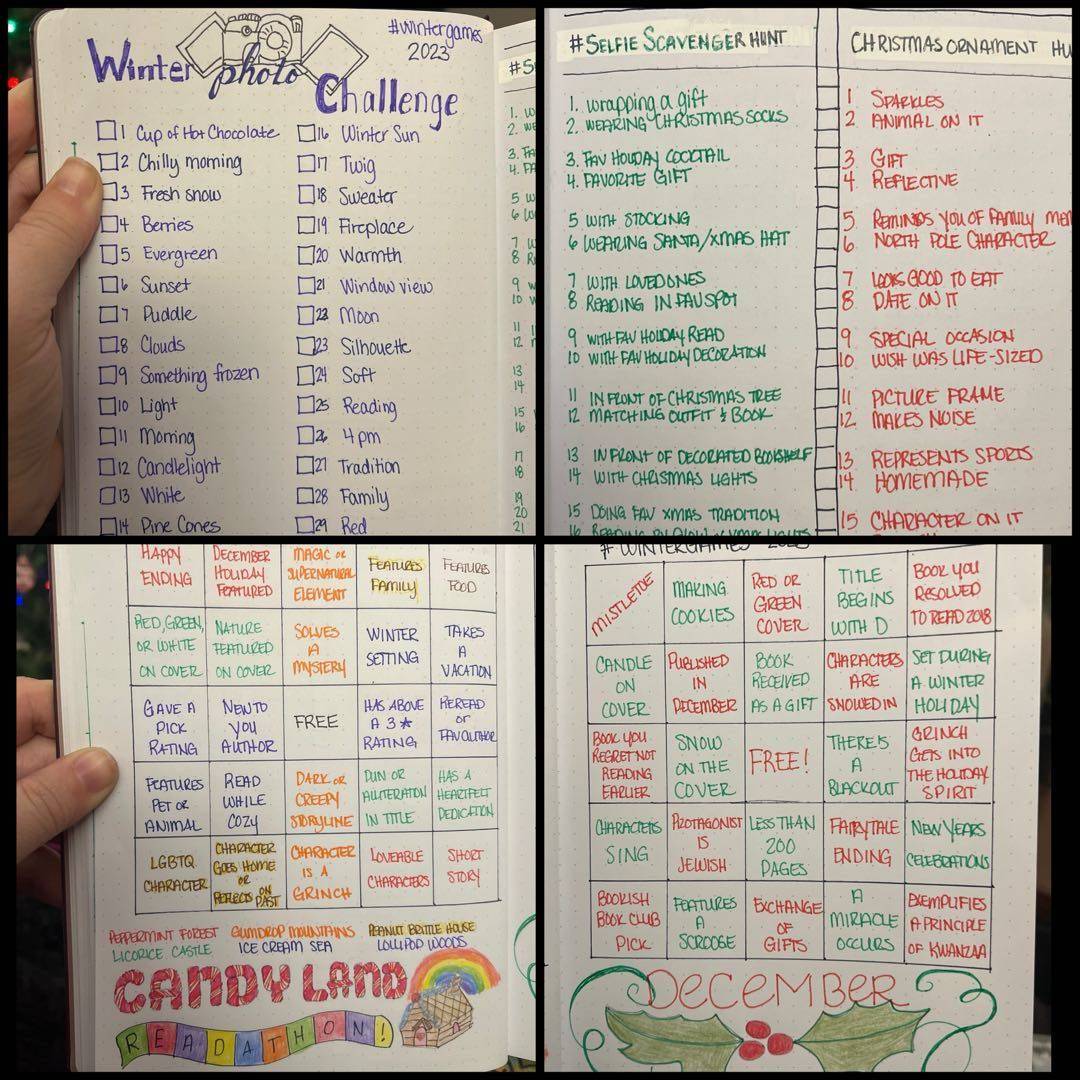 Winter photo Challenge
#wintergames
2023
1 Cup of Hot Chocolate
2 Chilly morning
3 Fresh snow
4 Berries
5 Evergreen
6 Sunset
7 Puddle
8 Clouds
9 Something frozen
10 Light
11 Morning
12 Candlelight
13 White
14 Pine Cones
16 Winter Sun
17 Twig
18 Sweater
19 Fireplace
20 Warmth
21 Window view
22 Moon
23 Silhouette
24 Soft
25 Reading
26 4pm
27 Tradition
28 Family
29 Red
#SELFIE SCAVENGER HUNT
1. wrapping a gift
2. WEARING CHRISTMAS SOCKS
3. FAV HOLIDAY COCKTAIL
4. FAVORITE GIFT
5 WITH STOCKING
6 WEARING SANTA/XMAS HAT
7 WITH LOVED ONES
8 READING IN FAV SPOT
9 WITH FAV HOLIDAY READ
10 WITH FAV HOLIDAY DECORATION
11 IN FRONT OF CHRISTMAS TREE
12 MATCHING OUTFIT & BOOK
13 IN FRONT OF DECORATED BOOKSHELF
14 WITH CHRISTMAS LIGHTS
15 DOING FAV XMAS TRADITION
16 READING BY GLOW OF XMAS LIGHTS
CHRISTMAS ORNAMENT HU
1 SPARKLES
2 ANIMAL ON IT
3 GIFT
4 REFLECTIVE
5 REMINDS YOU OF FAMILY MEM
6 NORTH POLE CHARACTER
7 LOOKS GOOD TO EAT
8 DATE ON IT
9 SPECIAL OCCASION
10 WISH WAS LIFE-SIZED
11 PICTURE FRAME
12 MAKES NOISE
13 REPRESENTS SPORTS
14 HOMEMADE
15 CHARACTER ON IT
HAPPY
ENDING
DECEMBER
HOLIDAY
FEATURED
MAGIC OR
SUPERNATURAL
ELEMENT
FEATURES
FAMILY
FEATURES
FOOD
RED, GREEN,
OR WHITE
ON COVER
NATURE
FEATURED
ON COVER
SOLVES
A
MYSTERY
WINTER
SETTING
TAKES
A
VACATION
GAVE A
PICK
RATING
NEW TO
YOU
AUTHOR
FREE
HAS ABOVE
A 3★
RATING
REREAD
OR
FAV AUTHOR
FEATURES
PET OR
ANIMAL
READ
WHILE
COZY
DARK OR
CREEPY
STORYLINE
PUN OR
ALLITERATION
IN TITLE
HAS A
HEARTFELT
DEDICATION
LGBTQ
CHARACTER
CHARACTER
GOES HOME
OR
REFLECTS ON
PAST
CHARACTER
IS A
GRINCH
LOVEABLE
CHARACTERS
SHORT
STORY
PEPPERMINT FOREST GUMDROP MOUNTAINS PEANUT BRITTLE HOUSE
LICORICE CASTLE ICE CREAM SEA LOLLIPOP WOODS
CANDY LAND
READATHON!
# WINTERGAMES
MISTLETOE
MAKING
COOKIES
RED OR
GREEN
COVER
TITLE
BEGINS
WITH D
BOOK YOU
RESOLVED
TO READ 2018
CANDLE
ON
COVER
PUBLISHED
IN
DECEMBER
BOOK
RECEIVED
AS A GIFT
CHARACTERS
ARE
SNOWED IN
SET DURING
A WINTER
HOLIDAY
BOOK YOU
REGRET NOT
READING
EARLIER
SNOW
ON THE
COVER
FREE!
THERE IS
A
BLACKOUT
GRINCH
GETS INTO
THE HOLIDAY
SPIRIT
CHARACTERS
SING
PROTAGONIST
IS
JEWISH
LESS THAN
200
PAGES
FAIRYTALE
ENDING
NEW YEARS
CELEBRATIONS
BOOKISH
BOOK CLUB
PICK
FEATURES
A
SCROOGE
EXCHANGE
OF
GIFTS
A
MIRACLE
OCCURS
EXEMPLIFIES
A PRINCIPLE
OF KWANZAA
DECEMBER